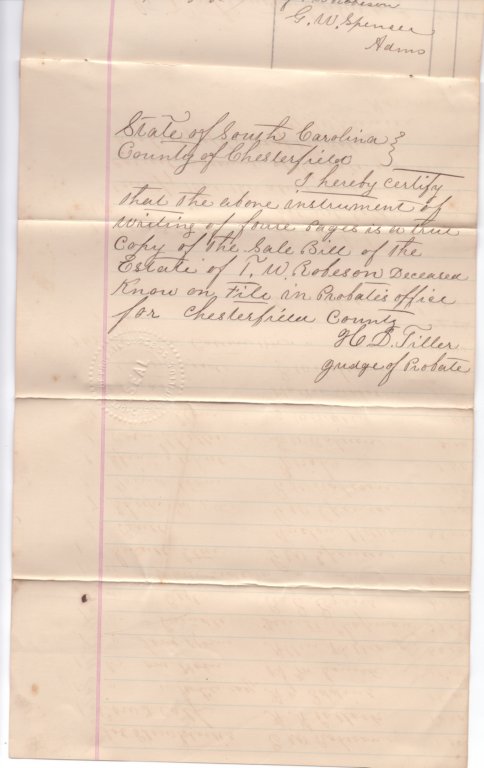 Robeson
G. W. Spencer
Adms
State of South Carolina }
County of Chesterfield }
I hereby certify
that the above instrument of
writing of foure Pages is a true
Copy of the Sale Bill of the
Estate of T. W. Robeson Deceased
Know on File in Probates office
for Chesterfield County
H. D. Tiller
Judge of Probate
SEAL